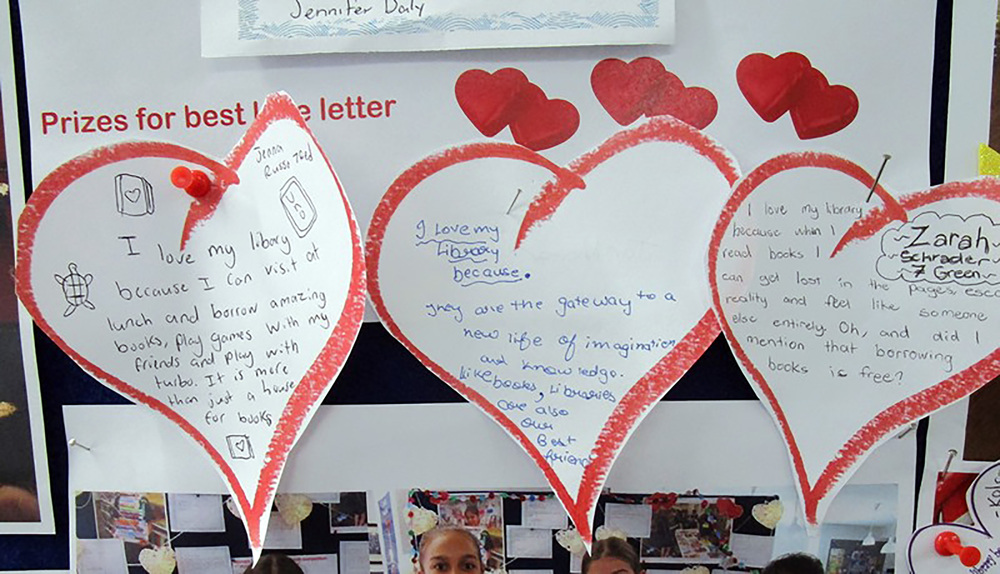 Jennifer Daly
Prizes for best letter
Jenna
I love my libory
because I can visit at
lunch and borrow amazing
books, play games with my
friends and play with
turbo. It is more
than just a house
for books
I Love my
Library
because.
They are the gateway to a
new life of imagination
and knowledge.
Like books, Libraries
are also
our
Best
friend
I love my library
because when I
read books I
can get lost in the pages, esca
reality and feel like someone
else entirely. Oh, and did I
mention that borrowing
books is free?
Zarah
Schrader
7 Green